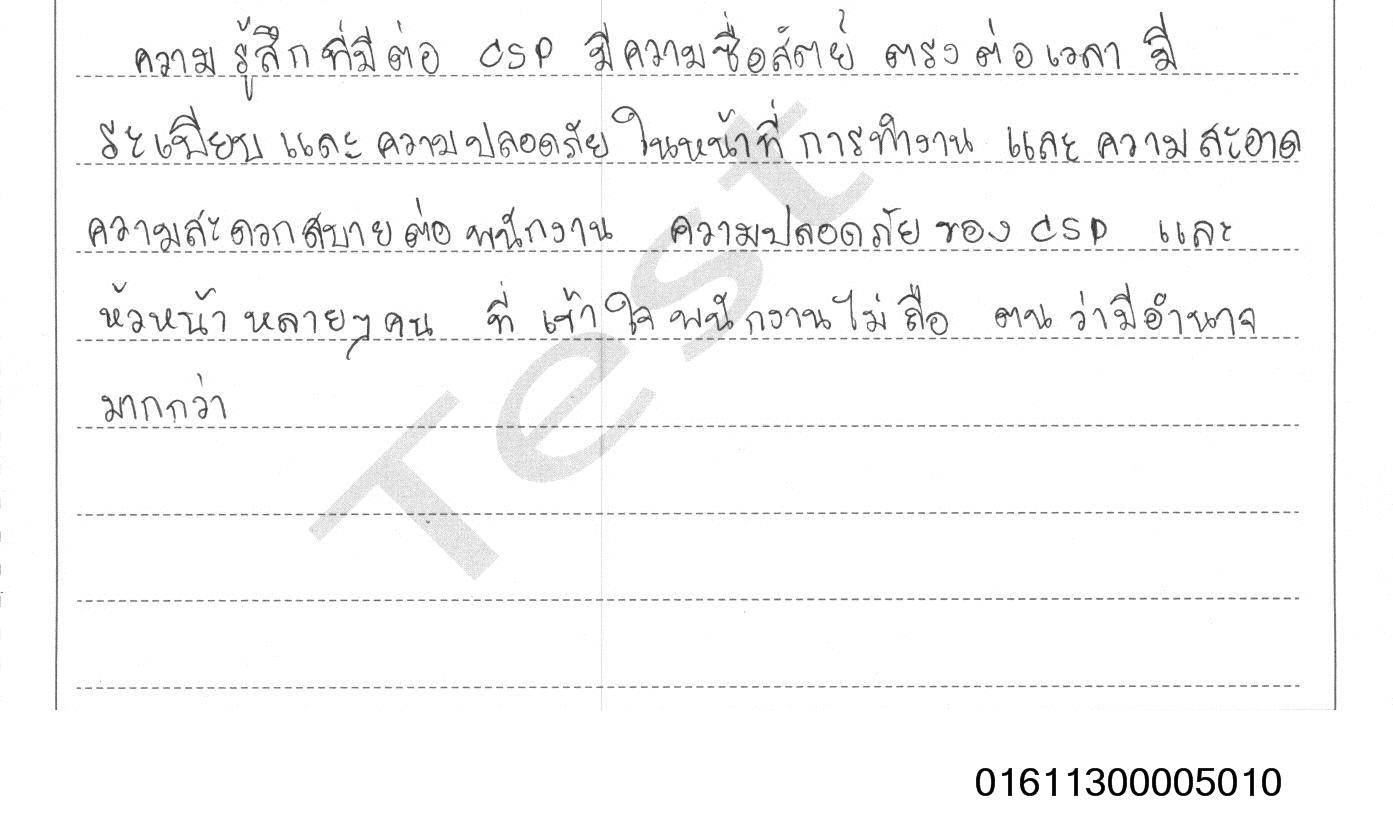 ความรู้สึกที่มีต่อ CSP มีความซื่อสัตย์ ตรงต่อเวลา มี
ระเบียบ และ ความปลอดภัย ในหน้าที่ การทำงาน และ ความสะอาด
ความสะดวกสบายต่อพนักงาน ความปลอดภัยของ CSP และ
หัวหน้า หลายๆคน ที่ เข้าใจพนักงานไม่ถือ ตนว่ามีอำนาจ
มากกว่า
Test
01611300005010